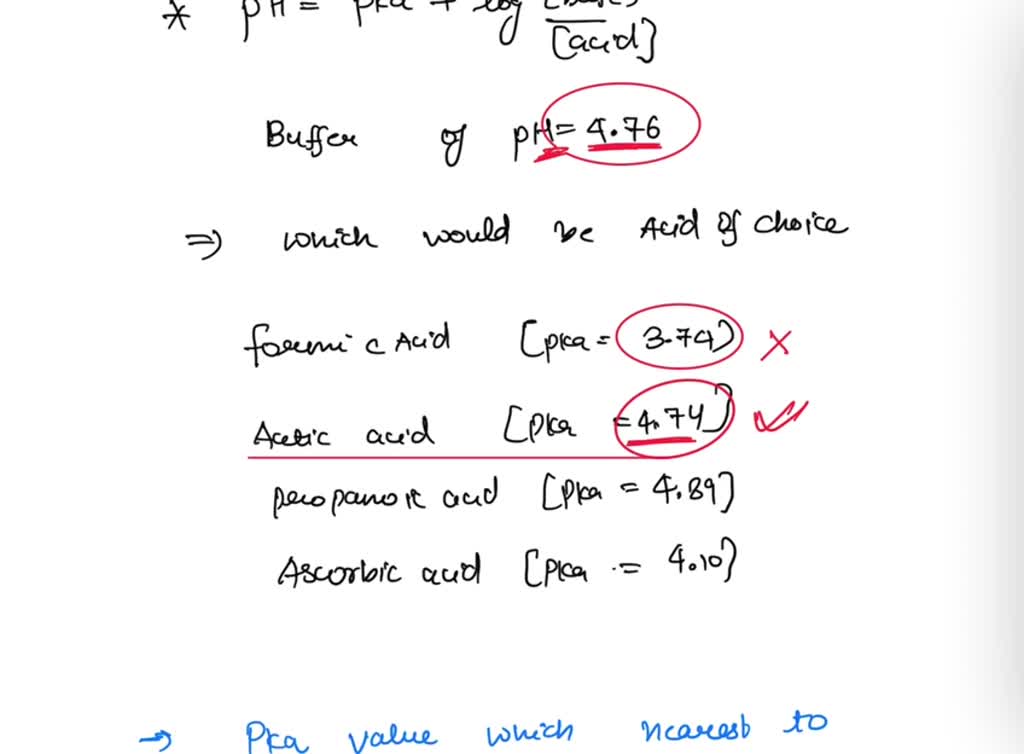 * pH = pka + log [base]
[acid]
Buffer of pH = 4.76
⇒ which would be Acid of choice
formic Acid [pka = 3.74] ×
Acetic acid [pka = 4.74] ✓
propanoic acid [pka = 4.89]
Ascorbic acid [pka = 4.10]
→ Pka value which nearest to